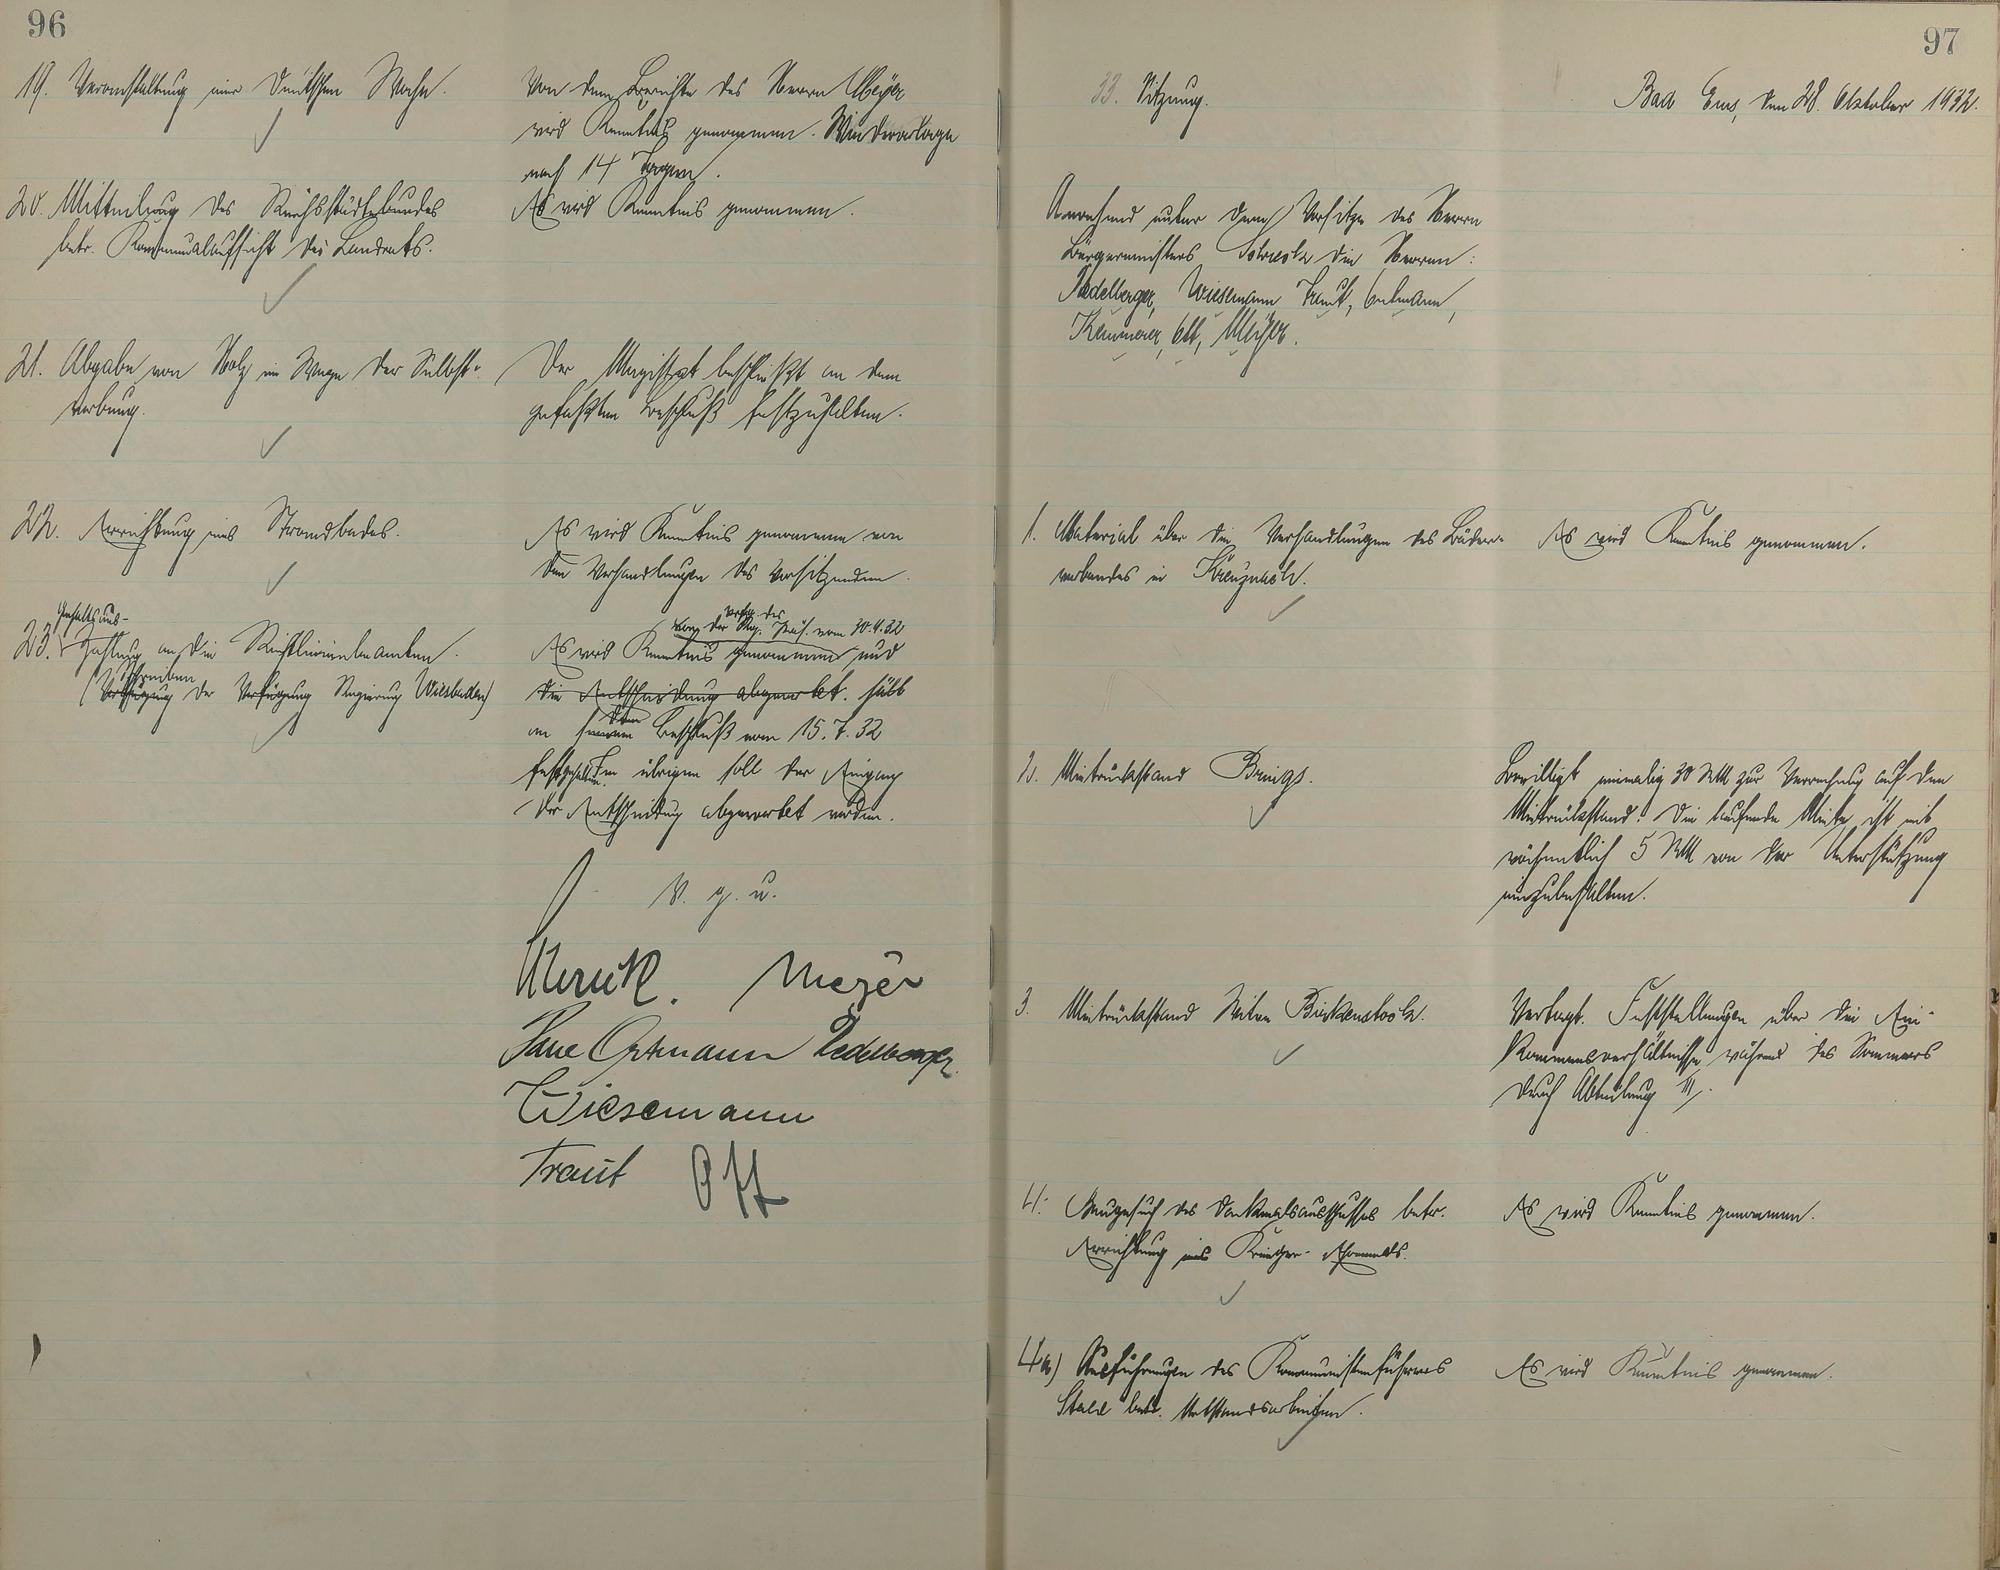 96
19. Veranstaltung einer Deutschen Woche.
Von dem Berichte des Herrn Meyer
wird Kenntnis genommen. Wiedervorlage
nach 14 Tagen.
20. Mitteilung des Reichsstädtebundes
betr. Kommunalaufsicht des Landrats.
Es wird Kenntnis genommen.
21. Abgabe von Holz im Wege der Selbst-
werbung.
Der Magistrat beschließt an dem
gefaßten Beschluß festzuhalten.
22. Errichtung eines Strandbades.
Es wird Kenntnis genommen von
den Verhandlungen des Vorsitzenden.
Gehaltsaus-
23. Zahlung an die Ruhelinienbeamten.
Schreiben
(Verfügung der Verfügung Regierung Wiesbaden)
Verfg. des
von der Reg. Präs. vom 30.9.32
Es wird Kenntnis genommen und
die Entscheidung abgewartet. hält
dem
an seinem Beschluß vom 15.7.32
festgehalten. Im übrigen soll der Eingang
der Entscheidung abgewartet werden.
V. g. u.
Meyer
Ortmann Sedelberger
Wiesemann
Traut Ott
97
33. Sitzung.
Bad Ems, den 28. Oktober 1932.
Anwesend unter dem Vorsitze des Herrn
Bürgermeisters die Herren:
Sedelberger, Wiesemann Traut, Ortmann,
Kemmerer, Ott, Meyer.
1. Material über die Verhandlungen des Bäder-
verbandes in Kreuznach.
Es wird Kenntnis genommen.
2. Mietrückstand Brings.
Bewilligt einmalig 30 RM zur Verrechnung auf den
Mietrückstand. Die laufende Miete ist mit
wöchentlich 5 RM von der Unterstützung
einzubehalten.
3. Mietrückstand Witwe Birkenstock.
Vertagt. Feststellungen über die Ein-
kommensverhältnisse während des Sommers
durch Abteilung III.
4. Baugesuch des Denkmalsausschusses betr.
Errichtung eines Krieger-Ehrenmals.
Es wird Kenntnis genommen.
4a) Ausführungen des Kommunistenführers
Stahl betr. Notstandsarbeiten.
Es wird Kenntnis genommen.